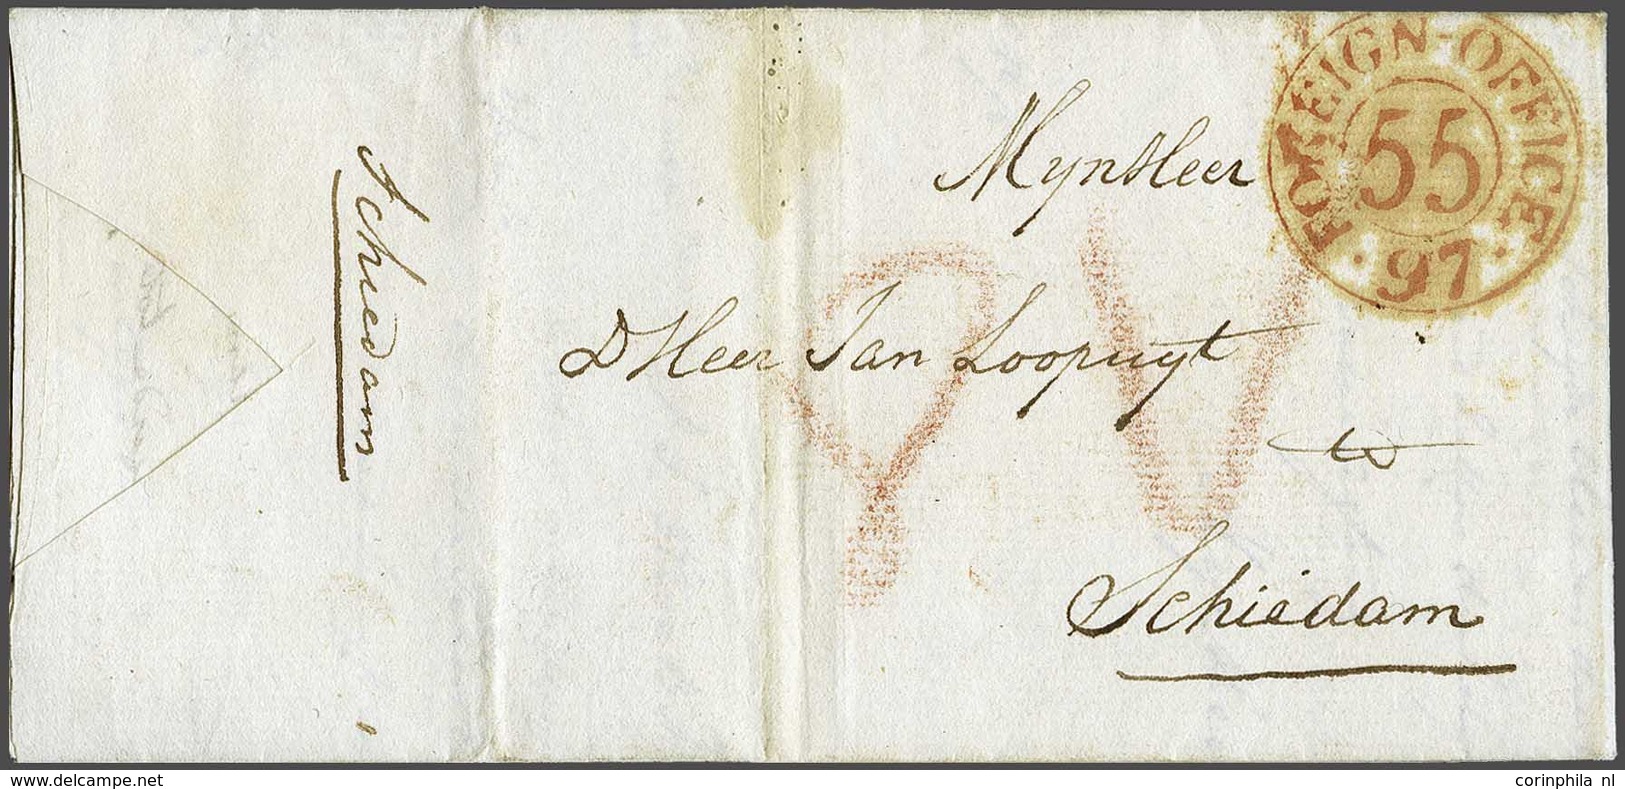 Schiedam
MynHeer
D Heer Jan Loopuyt
to
Schiedam
FOREIGN-OFFICE
55
97
www.delcampe.net
corinphila nl